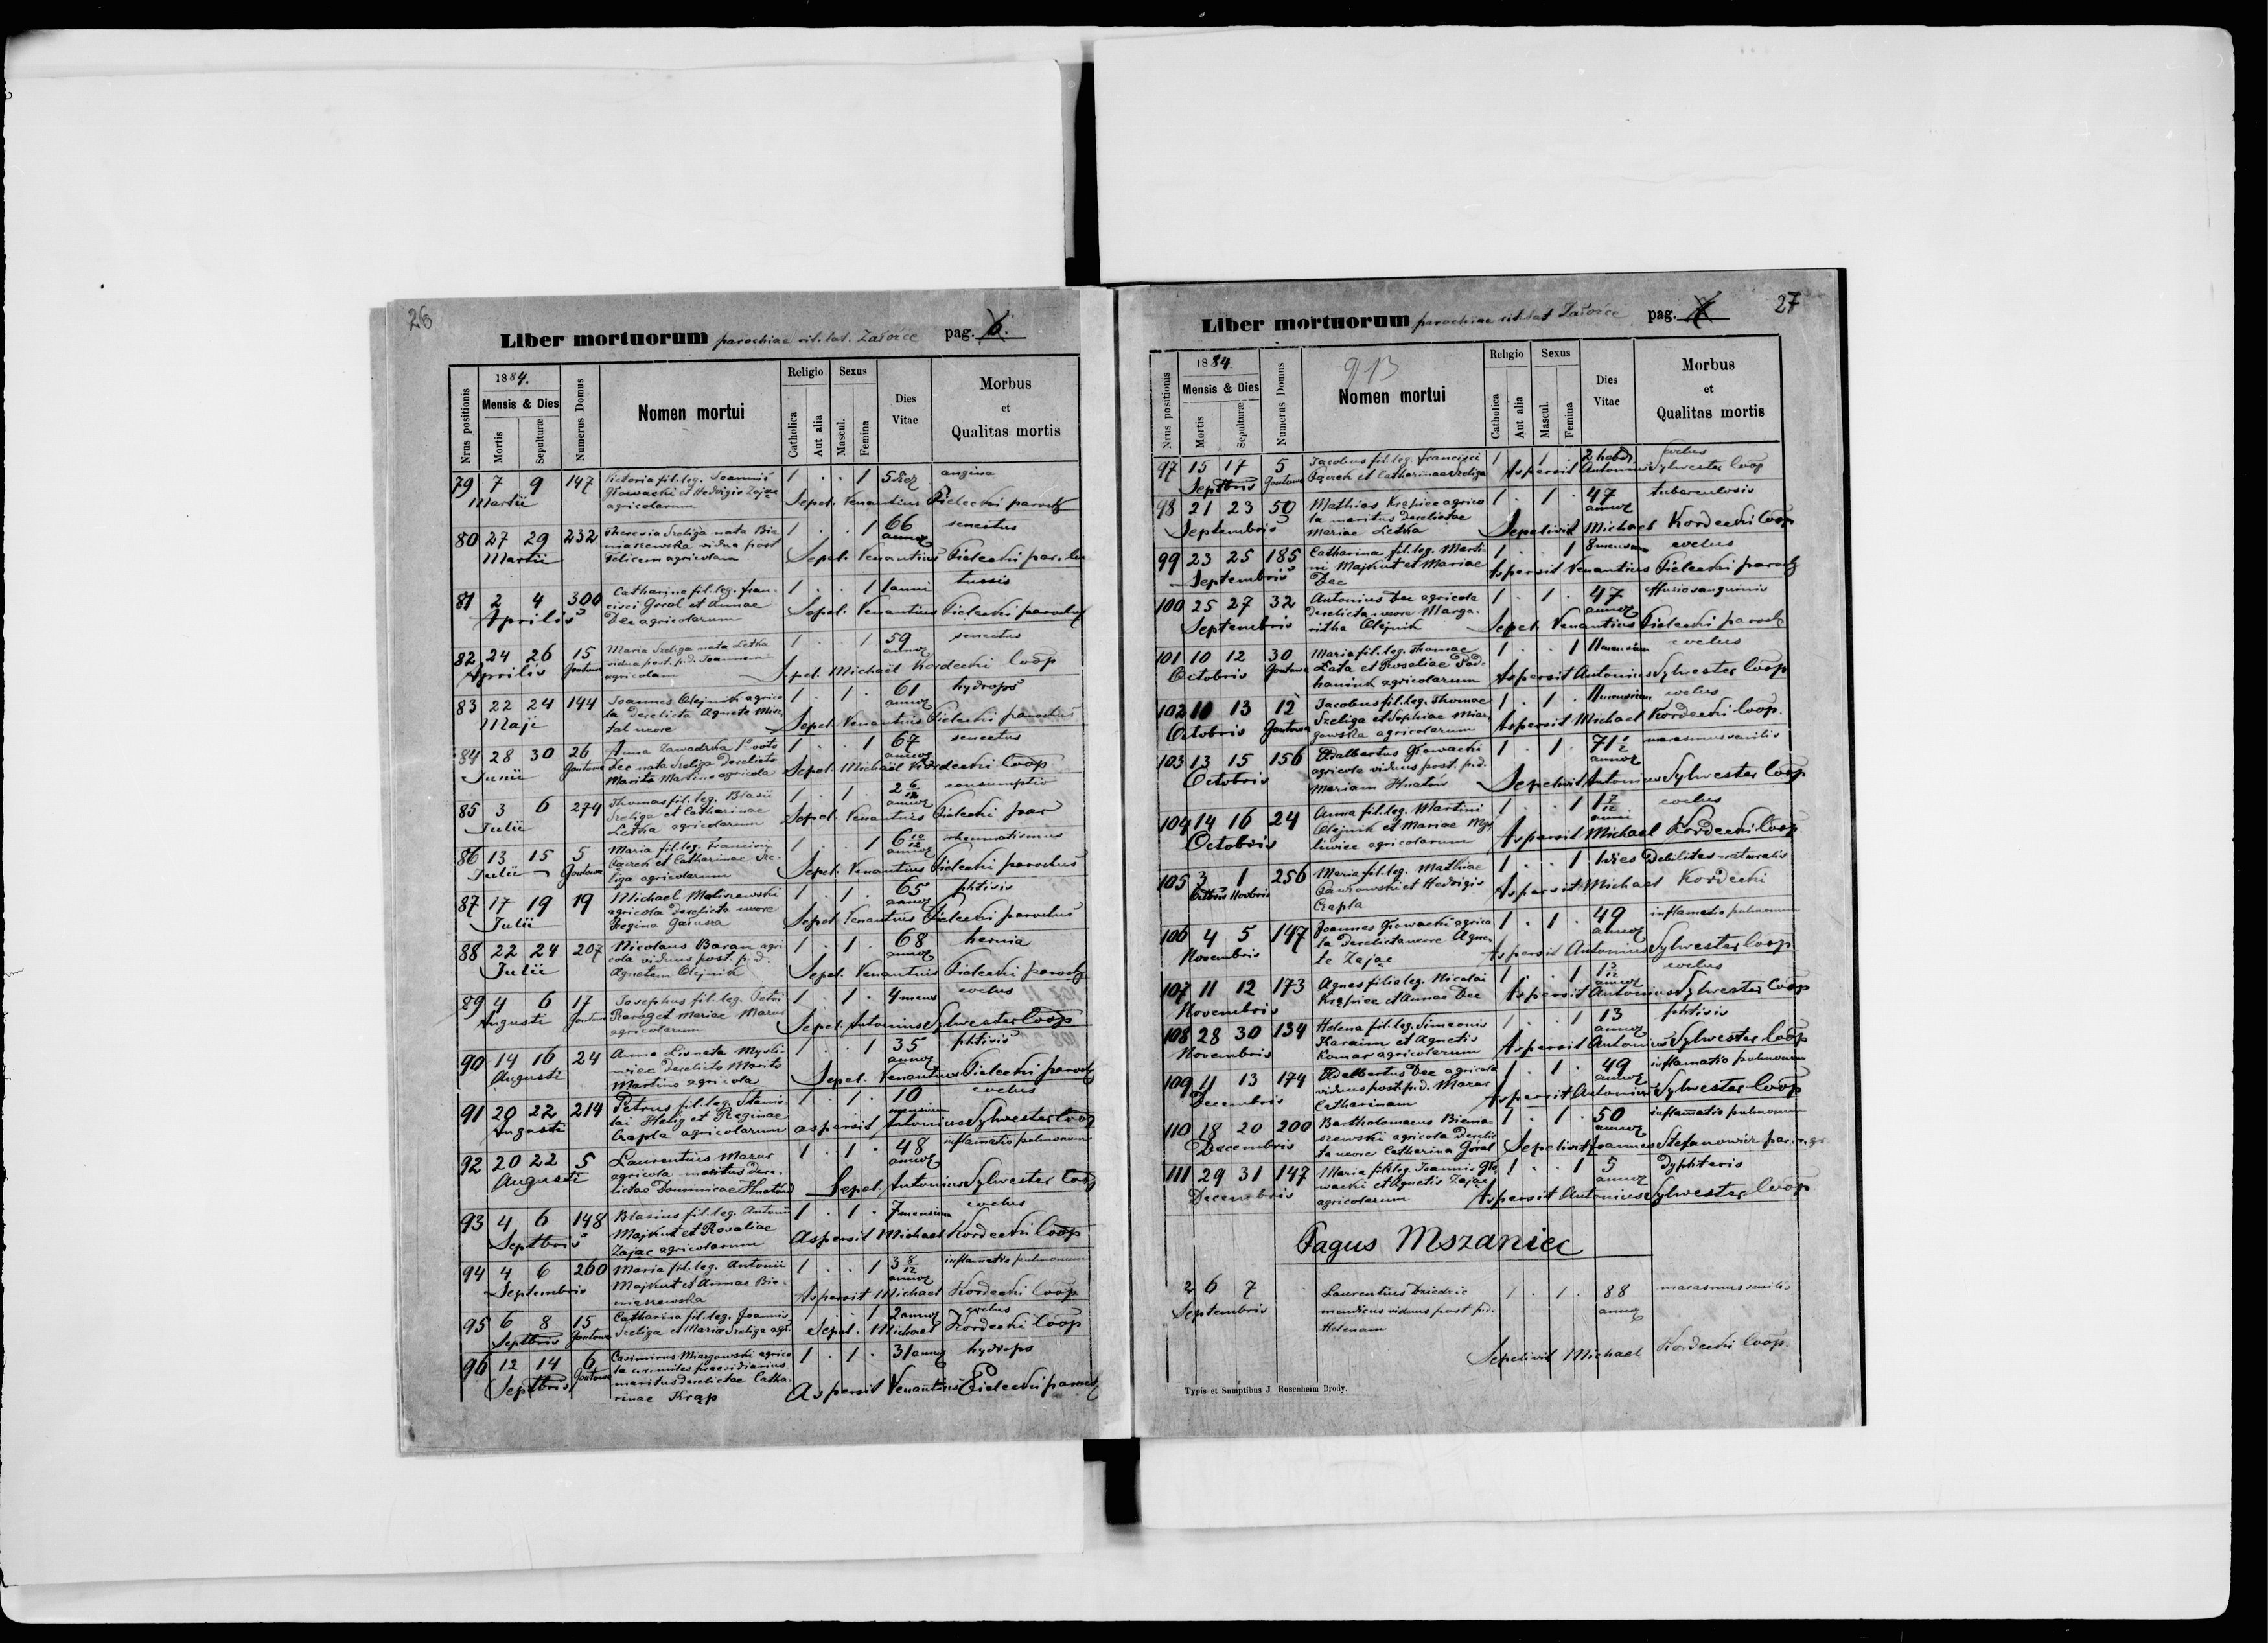 26
Liber mortuorum parochiae rit. lat. Załoźce pag. 6.
Nrus positionis
1884.
Mensis & Dies
Mortis
Sepulturæ
Numerus Domus
Nomen mortui
Religio
Catholica
Aut alia
Sexus
Mascul.
Femina
Dies
Vitae
Morbus
et
Qualitas mortis
79 7 9 147 Victoria fil. leg. Joannis 1 . . 1 angina
Martii Głowacki et Hedvigis Zając Sepel. Venantius Pielecki paroch
agricolarum
80 27 29 232 Theresia Szeliga nata Bie 1 . . 1 66 annor senectus
Martii niaszewska vidua post Sepel. Venantius Pielecki
Felicem agricolam
81 2 4 300 Catharina fil. leg. Fran- 1 . . 1 1 anni tussis
Aprilis cisci Góral et Annae Sepel. Venantius Pielecki parochus
Dec agricolarum
82 24 26 15 Maria Szeliga nata Letka 1 . . 1 59 annor senectus
Aprilis Gontowa vidua post p.d. Joannem Sepel. Michaël Kordecki Coop
agricolam
83 22 24 144 Joannes Olejnik agrico 1 . 1 . 61 annor hydrops
Maji la derelicta Agnete Sepel. Venantius Pielecki parochus
uxore
84 28 30 26 Anna Zawadzka 1º voto 1 . . 1 67 annor senectus
Junii Gontowa Dec nata Szeliga derelicto Sepel. Michaël Kordecki Coop
Marito Martino agricola
85 3 6 274 Thomas fil. leg. Blasii 1 . 1 . 2 6/12 annor consumptio
Julii Szeliga et Catharinae Sepel. Venantius Pielecki par
Letka agricolarum
86 13 15 5 Maria fil. leg. Francisci 1 . . 1 rheumatismus
Julii Gontowa et Catharinae Sze- Sepel. Venantius Pielecki parochus
liga agricolarum
87 17 19 19 Michael Maliszewski 1 . 1 . 65 annor phtisis
Julii agricola derelicta uxore Sepel. Venantius Pielecki parochus
Regina
88 22 24 207 Nicolaus Baran agri 1 . 1 . 68 annor hernia
Julii cola viduus post. p.d. Sepel. Venantius Pielecki paroch
Agnetem Olejnik
89 4 6 17 Josephus fil. leg. Petri 1 . 1 . 4 mens
Augusti Gontowa et Mariae Mazur Sepel. Antonius Sylwester Coop
agricolarum
90 14 16 24 Anna Lis nata Myśli- 1 . . 1 35 annor phtisis
Augusti wiec derelicto Marito Sepel. Venantius Pielecki paroch
Martino agricola
91 20 22 214 Petrus fil. leg. Stanis- 1 . 1 . 10 mensium
Augusti lai et Reginae aspersit Antonius Sylwester Coop
Czapla agricolarum
92 20 22 5 Laurentius Mazur 1 . 1 . 48 annor inflamatio pulmonum
Augusti agricola maritus dere- Sepel. Antonius Sylwester Coop
lictae Dominicae Hnatów
93 4 6 148 Blasius fil. leg. Antonii 1 . 1 . 7 mensium
Septbris Majkut et Rosaliae Aspersit Michael Kordecki Coop
Zając agricolarum
94 4 6 260 Maria fil. leg. Antonii 1 . . 1 3 8/12 annor inflamatio pulmonum
Septembris Majkut et Annae Bie- Aspersit Michael Kordecki Coop
niaszewska
95 6 8 15 Catharina fil. leg. Joannis 1 . . 1 2 annor
Septbris Gontowa Szeliga et Maria Szeliga agr. Sepel. Michael Kordecki Coop
96 12 14 6 Casimirus Miazgowski agrico 1 . 1 . 31 annor hydrops
Septbris Gontowa la ex miles praesidiarius Aspersit Venantius Pielecki paroch
maritus derelictae Catha-
rinae Krąp
27
Liber mortuorum parochiae rit. lat. Załoźce pag. 7
Nrus positionis
1884
Mensis & Dies
Mortis
Sepulturæ
Numerus Domus
913
Nomen mortui
Religio
Catholica
Aut alia
Sexus
Mascul.
Femina
Dies
Vitae
Morbus
et
Qualitas mortis
97 15 17 5 Jacobus fil. leg. Francisci 1 . 1 . 2 hebd.
Septbris Gontowa et Catharinae Szeliga Aspersit Antonius Sylwester Coop
98 21 23 50 Mathias Krępiec agrico 1 . 1 . 47 annor tuberculosis
Septembris la maritus derelictae Sepelivit Michael Kordecki Coop
Mariae Letka
99 23 25 185 Catharina fil. leg. Marti- 1 . . 1 8 mensium
Septembris ni Majkut et Mariae Aspersit Venantius Pielecki paroch
Dec
100 25 27 32 Antonius Dec agricola 1 . 1 . 47 annor effusio sanguinis
Septembris derelicta uxore Marga- Sepel. Venantius Pielecki paroch
ritha Olejnik
101 10 12 30 Maria fil. leg. Thomae 1 . . 1 11 mensium
Octobris Gontowa Łata et Rosaliae Pod- Aspersit Antonius Sylwester Coop
haniuk agricolarum
102 11 13 12 Jacobus fil. leg. Thomae 1 . 1 . 11 mensium
Octobris Gontowa Szeliga et Sophiae Miaz- Aspersit Michael Kordecki Coop.
gowska agricolarum
103 13 15 156 Adalbertus Głowacki 1 . 1 . 71 1/2 annor marasmus senilis
Octobris agricola viduus post. p.d. Sepelivit Antonius Sylwester Coop
Mariam Hnatów
104 14 16 24 Anna fil. leg. Martini 1 . . 1 1 7/12 anni
Octobris Olejnik et Mariae Myś- Aspersit Michael Kordecki Coop.
liwiec agricolarum
105 3 1 256 Maria fil. leg. Mathiae 1 . . 1 1 dies debilitas naturalis
Octbris Novbris Pawłowski et Hedvigis Aspersit Michael Kordecki
Czapla
106 4 5 147 Joannes Głowacki agrico 1 . 1 . 49 annor inflamatio pulmonum
Novembris la derelicta uxore Agne- Aspersit Antonius Sylwester Coop
te Zając
107 11 12 173 Agnes filia leg. Nicolai 1 . . 1 1 3/12 annor
Novembris Krępiec et Annae Dec Aspersit Antonius Sylwester Coop
108 28 30 134 Helena fil. leg. Simeonis 1 . . 1 13 annor phtisis
Novembris Karaim et Agnetis Aspersit Antonius Sylwester Coop
Komar agricolarum
109 11 13 174 Adalbertus Dec agricola 1 . 1 . 49 annor inflamatio pulmonum
Decembris viduus post. p.d. Mazur Aspersit Antonius Sylwester Coop
Catharinam
110 18 20 200 Bartholomaeus Bienia- 1 . 1 . 50 annor inflamatio pulmonum
Decembris szewski agricola derelic- Sepelivit Joannes Stefanowicz par. r. gr.
ta uxore Catharina Góral
111 29 31 147 Maria fil. leg. Joannis Gło- 1 . . 1 5 annor dyphteris
Decembris wacki et Agnetis Zając Aspersit Antonius Sylwester Coop
agricolarum
Pagus Mszaniec
2 6 7 Laurentius Dziedzic 1 . 1 . 88 annor marasmus senilis
Septembris mendicus viduus post p.d.
Helenam
Sepelivit Michael Kordecki Coop.
Typis et Sumptibus J. Rosenheim Brody.